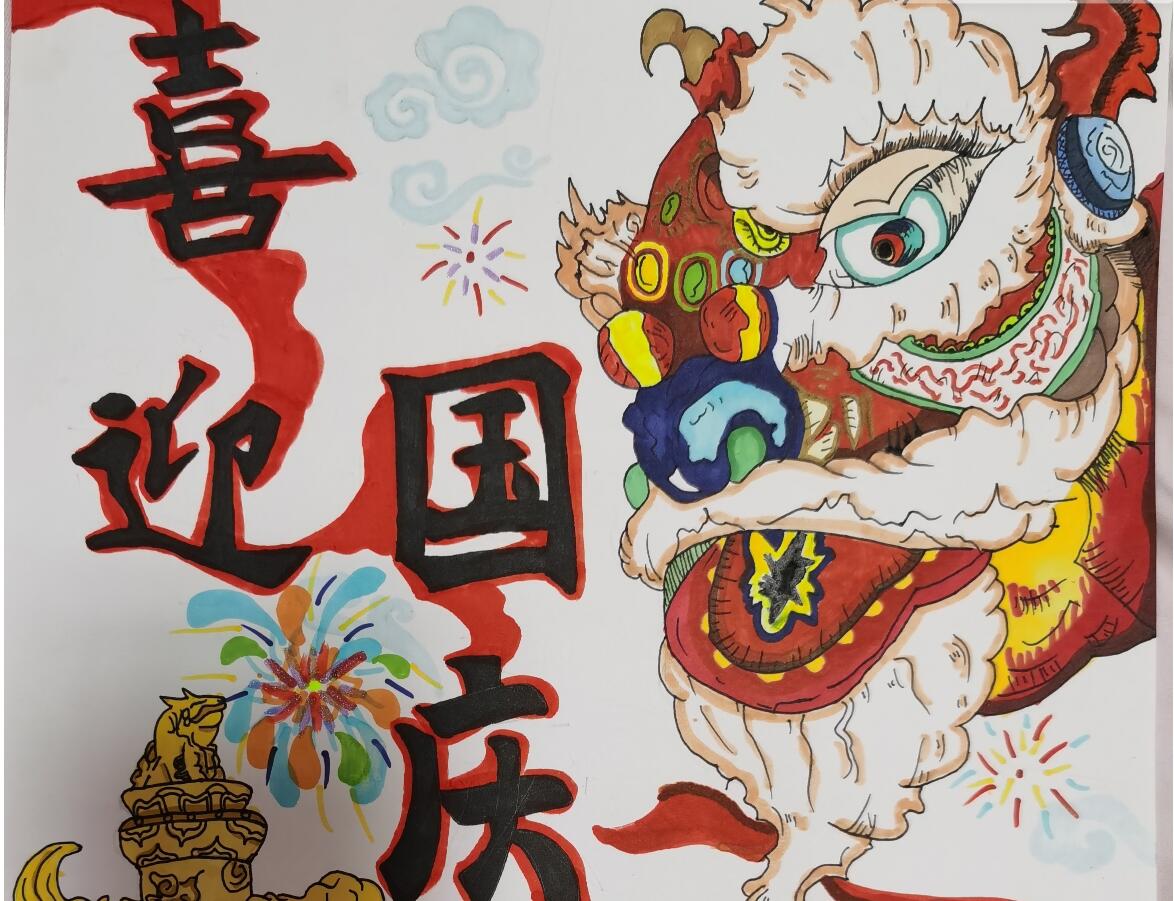 喜迎
国庆